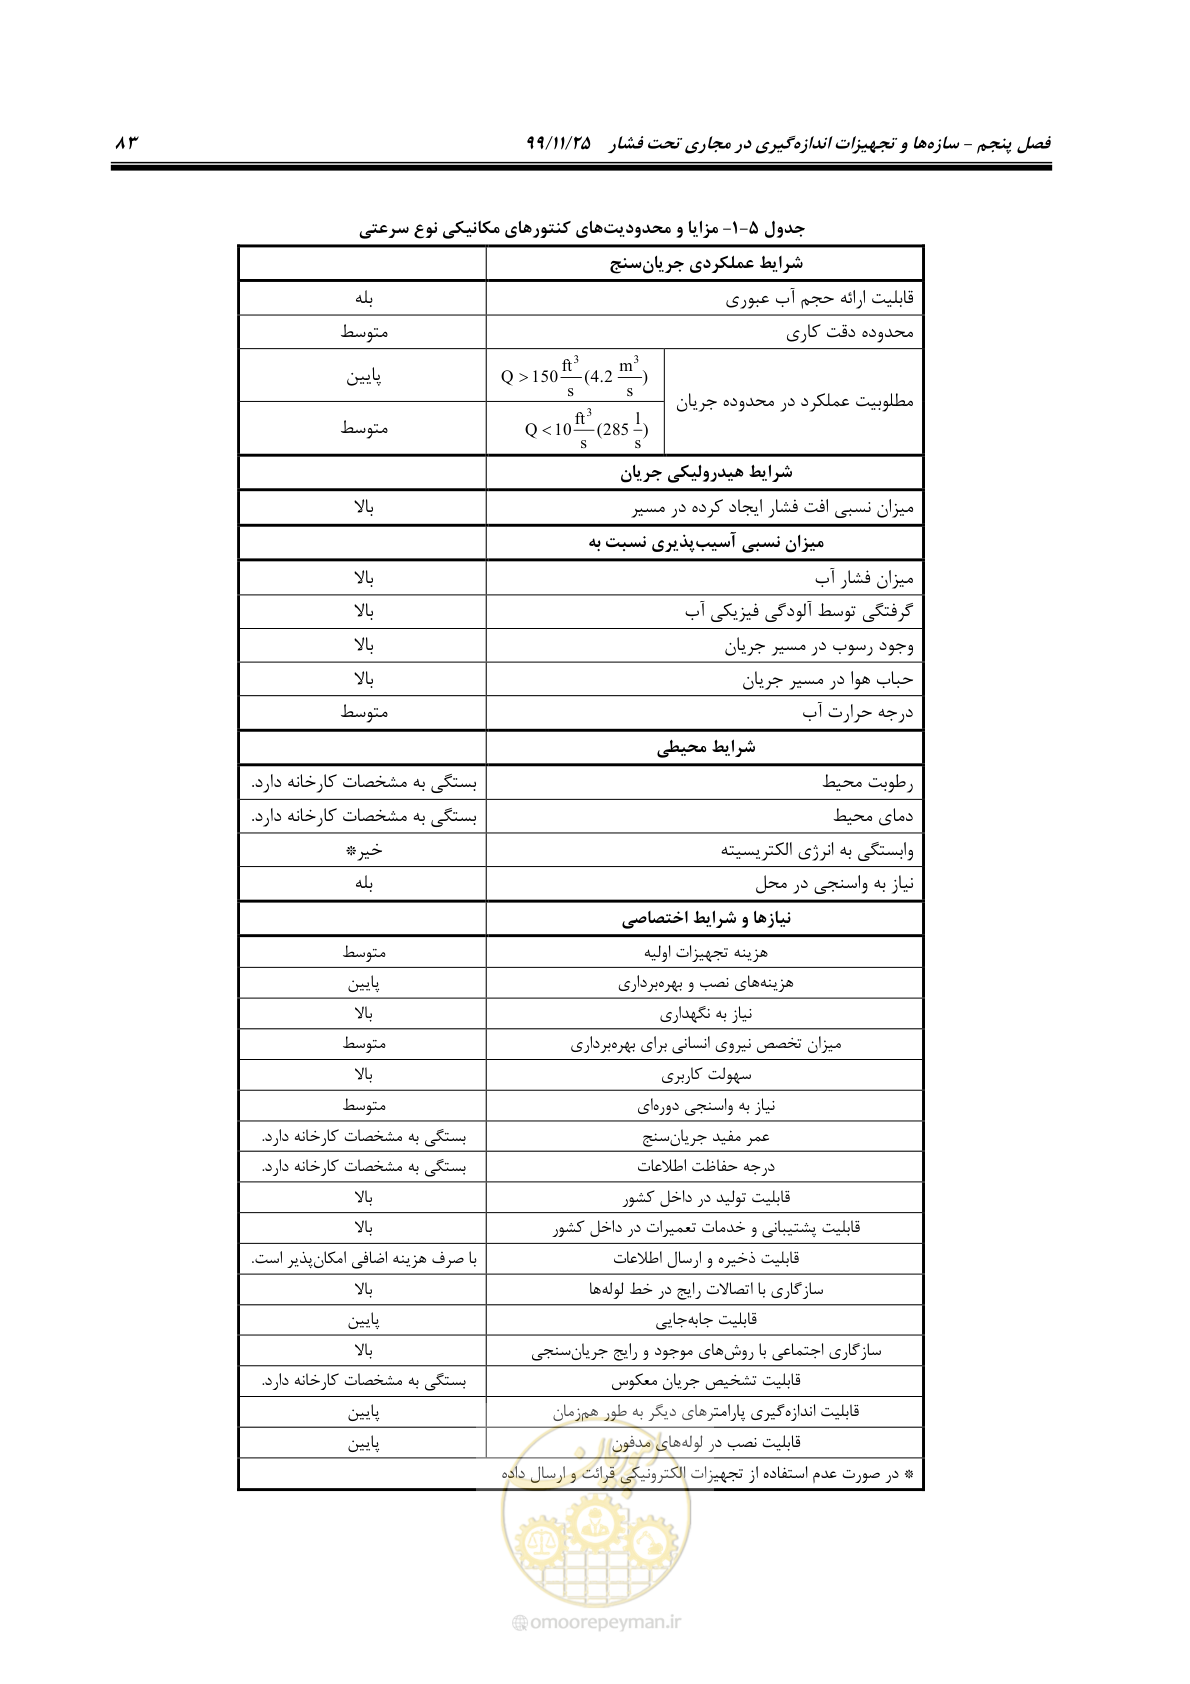 فصل پنجم – سازه‌ها و تجهیزات اندازه‌گیری در مجاری تحت فشار ۹۹/۱۱/۲۵ ۸۳
جدول ۵-۱- مزایا و محدودیت‌های کنتورهای مکانیکی نوع سرعتی
شرایط عملکردی جریان‌سنج
قابلیت ارائه حجم آب عبوری بله
محدوده دقت کاری متوسط
مطلوبیت عملکرد در محدوده جریان
Q > 150 ft³/s (4.2 m³/s) پایین
Q < 10 ft³/s (285 l/s) متوسط
شرایط هیدرولیکی جریان
میزان نسبی افت فشار ایجاد کرده در مسیر بالا
میزان نسبی آسیب‌پذیری نسبت به
میزان فشار آب بالا
گرفتگی توسط آلودگی فیزیکی آب بالا
وجود رسوب در مسیر جریان بالا
حباب هوا در مسیر جریان بالا
درجه حرارت آب متوسط
شرایط محیطی
رطوبت محیط بستگی به مشخصات کارخانه دارد.
دمای محیط بستگی به مشخصات کارخانه دارد.
وابستگی به انرژی الکتریسیته خیر*
نیاز به واسنجی در محل بله
نیازها و شرایط اختصاصی
هزینه تجهیزات اولیه متوسط
هزینه‌های نصب و بهره‌برداری پایین
نیاز به نگهداری بالا
میزان تخصص نیروی انسانی برای بهره‌برداری متوسط
سهولت کاربری بالا
نیاز به واسنجی دوره‌ای متوسط
عمر مفید جریان‌سنج بستگی به مشخصات کارخانه دارد.
درجه حفاظت اطلاعات بستگی به مشخصات کارخانه دارد.
قابلیت تولید در داخل کشور بالا
قابلیت پشتیبانی و خدمات تعمیرات در داخل کشور بالا
قابلیت ذخیره و ارسال اطلاعات با صرف هزینه اضافی امکان‌پذیر است.
سازگاری با اتصالات رایج در خط لوله‌ها بالا
قابلیت جابه‌جایی پایین
سازگاری اجتماعی با روش‌های موجود و رایج جریان‌سنجی بالا
قابلیت تشخیص جریان معکوس بستگی به مشخصات کارخانه دارد.
قابلیت اندازه‌گیری پارامترهای دیگر به طور هم‌زمان پایین
قابلیت نصب در لوله‌های مدفون پایین
* در صورت عدم استفاده از تجهیزات الکترونیکی قرائت و ارسال داده
امور پیمان
omoorepeyman.ir